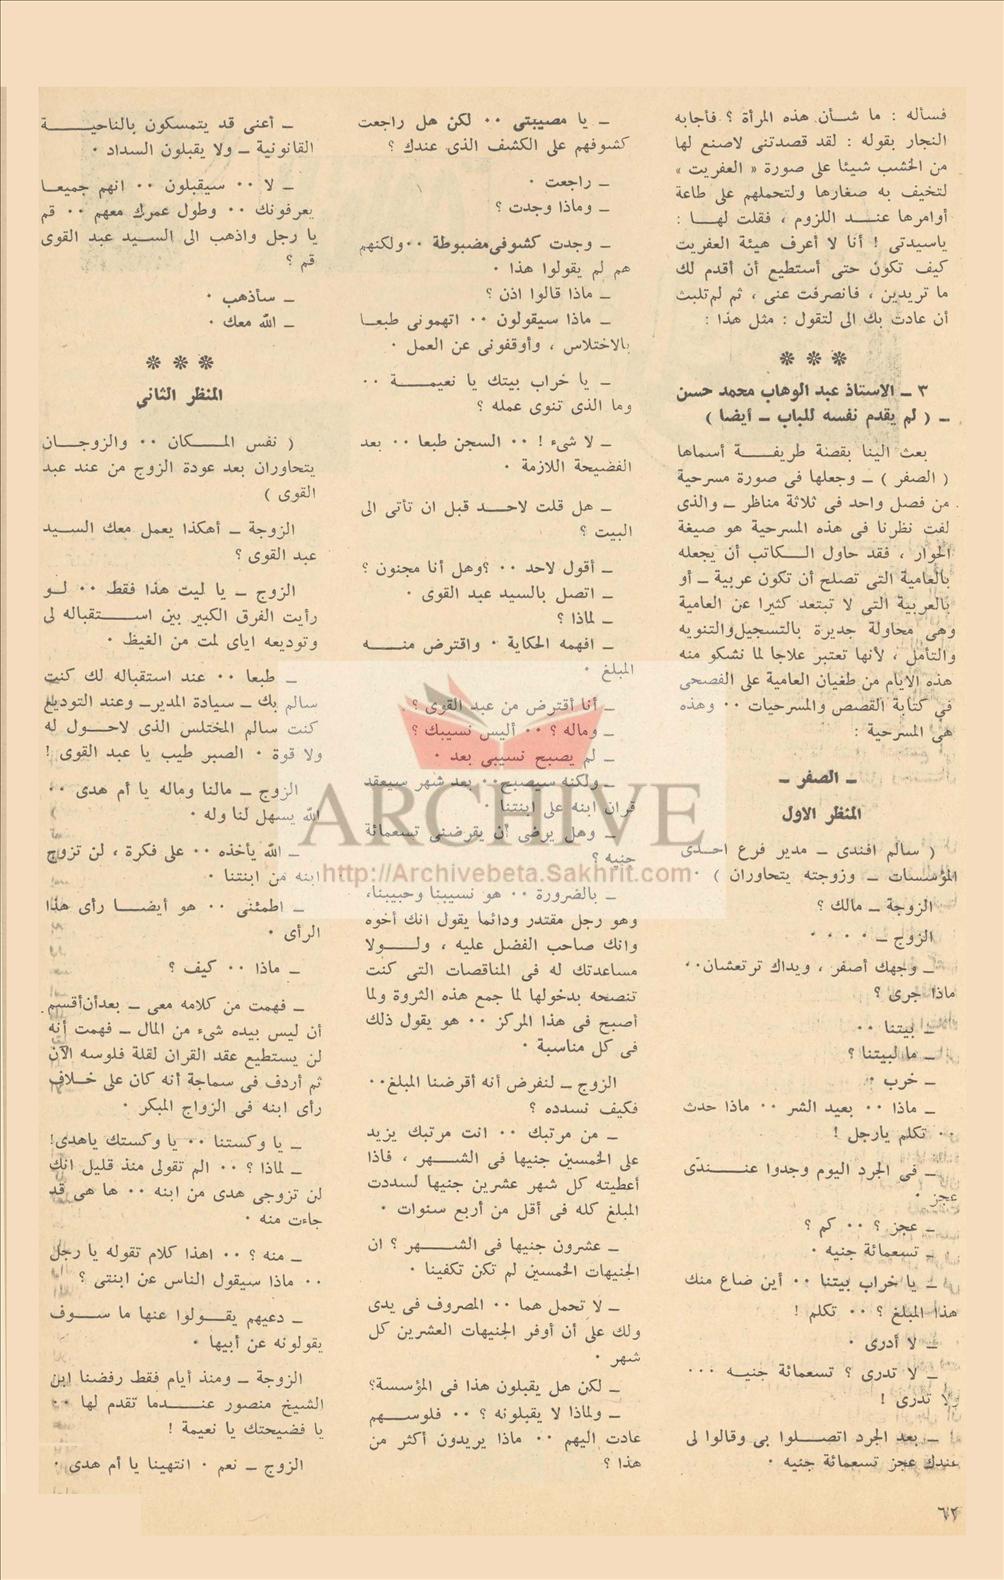 فسأله : ما شأن هذه المرأة ؟ فأجابه
النجار بقوله : لقد قصدتنى لاصنع لها
من الخشب شيئا على صورة « العفريت »
لتخيف به صغارها ولتحملهم على طاعة
أوامرها عند اللزوم ، فقلت لها :
ياسيدتى ! أنا لا أعرف هيئة العفريت
كيف تكون حتى أستطيع أن أقدم لك
ما تريدين ، فانصرفت عنى ، ثم لم تلبث
أن عادت بك الى لتقول : مثل هذا :
* * *
٣ ــ الاستاذ عبد الوهاب محمد حسن
ــ ( لم يقدم نفسه للباب ــ أيضا )
بعث الينا بقصة طريفة أسماها
( الصفر ) ــ وجعلها فى صورة مسرحية
من فصل واحد فى ثلاثة مناظر ــ والذى
لفت نظرنا فى هذه المسرحية هو صيغة
الحوار ، فقد حاول الكاتب أن يجعله
بالعامية التى تصلح أن تكون عربية ــ أو
بالعربية التى لا تبتعد كثيرا عن العامية
وهى محاولة جديرة بالتسجيل والتنويه
والتأمل ، لأنها تعتبر علاجا لما نشكو منه
هذه الايام من طغيان العامية على الفصحى
فى كتابة القصص والمسرحيات ٠٠ وهذه
هى المسرحية :
ــ الصفر ــ
المنظر الاول
( سالم افندى ــ مدير فرع احدى
المؤسسات ــ وزوجته يتحاوران ) ٠
الزوجة ــ مالك ؟
الزوج ــ ٠ ٠ ٠ ٠
ــ وجهك أصفر ، ويداك ترتعشان ٠٠
ماذا جرى ؟
ــ بيتنا ٠٠
ــ ما لبيتنا ؟
ــ خرب ٠
ــ ماذا ٠٠ بعيد الشر ٠٠ ماذا حدث
٠٠ تكلم يارجل !
ــ فى الجرد اليوم وجدوا عندى
عجز ٠
ــ عجز ؟ ٠٠ كم ؟
ــ تسعمائة جنيه ٠
ــ يا خراب بيتنا ٠٠ أين ضاع منك
هذا المبلغ ؟ ٠٠ تكلم !
ــ لا أدرى ٠
ــ لا تدرى ؟ تسعمائة جنيه ٠٠٠
ولا تدرى !
ــ بعد الجرد اتصلوا بى وقالوا لى
عندك عجز تسعمائة جنيه ٠
ــ يا مصيبتى ٠٠ لكن هل راجعت
كشوفهم على الكشف الذى عندك ؟
ــ راجعت ٠
ــ وماذا وجدت ؟
ــ وجدت كشوفى مضبوطة ٠٠ ولكنهم
هم لم يقولوا هذا ٠
ــ ماذا قالوا اذن ؟
ــ ماذا سيقولون ٠٠ اتهمونى طبعا
بالاختلاس ، وأوقفونى عن العمل ٠
ــ يا خراب بيتك يا نعيمة ٠٠
وما الذى تنوى عمله ؟
ــ لا شىء ! ٠٠ السجن طبعا ٠٠ بعد
الفضيحة اللازمة ٠
ــ هل قلت لاحد قبل ان تأتى الى
البيت ؟
ــ أقول لاحد ٠٠ ؟ وهل أنا مجنون ؟
ــ اتصل بالسيد عبد القوى ٠
ــ لماذا ؟
ــ افهمه الحكاية ٠ واقترض منه
المبلغ ٠
ــ أنا أقترض من عبد القوى ؟
ــ وماله ؟ ٠٠ أليس نسيبك ؟
ــ لم يصبح نسيبى بعد ٠
ــ ولكنه سيصبح ٠٠ بعد شهر سيعقد
قران ابنه على ابنتنا ٠
ــ وهل يرضى أن يقرضنى تسعمائة
جنيه ؟
ــ بالضرورة ٠٠ هو نسيبنا وحبيبنا،
وهو رجل مقتدر ودائما يقول انك أخوه
وانك صاحب الفضل عليه ، ولولا
مساعدتك له فى المناقصات التى كنت
تنصحه بدخولها لما جمع هذه الثروة ولما
أصبح فى هذا المركز ٠٠ هو يقول ذلك
فى كل مناسبة ٠
الزوج ــ لنفرض أنه أقرضنا المبلغ ٠٠
فكيف نسدده ؟
ــ من مرتبك ٠٠ انت مرتبك يزيد
على الخمسين جنيها فى الشهر ، فاذا
أعطيته كل شهر عشرين جنيها لسددت
المبلغ كله فى أقل من أربع سنوات ٠
ــ عشرون جنيها فى الشهر ؟ ان
الجنيهات الخمسين لم تكن تكفينا ٠
ــ لا تحمل هما ٠٠ المصروف فى يدى
ولك على أن أوفر الجنيهات العشرين كل
شهر ٠
ــ لكن هل يقبلون هذا فى المؤسسة؟
ــ ولماذا لا يقبلونه ؟ ٠٠ فلوسهم
عادت اليهم ٠٠ ماذا يريدون أكثر من
هذا ؟
ــ أعنى قد يتمسكون بالناحية
القانونية ــ ولا يقبلون السداد ٠
ــ لا ٠٠ سيقبلون ٠٠ انهم جميعا
يعرفونك ٠٠ وطول عمرك معهم ٠٠ قم
يا رجل واذهب الى السيد عبد القوى
قم ؟
ــ سأذهب ٠
ــ الله معك ٠
* * *
المنظر الثانى
( نفس المكان ٠٠ والزوجان
يتحاوران بعد عودة الزوج من عند عبد
القوى )
الزوجة ــ أهكذا يعمل معك السيد
عبد القوى ؟
الزوج ــ يا ليت هذا فقط ٠٠ لو
رأيت الفرق الكبير بين استقباله لى
وتوديعه اياى لمت من الغيظ ٠
ــ طبعا ٠٠ عند استقباله لك كنت
سالم بك ــ سيادة المدير ــ وعند التوديع
كنت سالم المختلس الذى لاحول له
ولا قوة ٠ الصبر طيب يا عبد القوى !
الزوج ــ مالنا وماله يا أم هدى ٠٠
الله يسهل لنا وله ٠
ــ الله يأخذه ٠٠ على فكرة ، لن تزوج
ابنه من ابنتنا ٠
ــ اطمئنى ٠٠ هو أيضا رأى هذا
الرأى ٠
ــ ماذا ٠٠ كيف ؟
ــ فهمت من كلامه معى ــ بعد أن أقسم
أن ليس بيده شىء من المال ــ فهمت أنه
لن يستطيع عقد القران لقلة فلوسه الآن
ثم أردف فى سماجة أنه كان على خلاف
رأى ابنه فى الزواج المبكر ٠
ــ يا وكستنا ٠٠ يا وكستك ياهدى!
ــ لماذا ؟ ٠٠ الم تقولى منذ قليل انك
لن تزوجى هدى من ابنه ٠٠ ها هى قد
جاءت منه ٠
ــ منه ؟ ٠٠ اهذا كلام تقوله يا رجل
٠٠ ماذا سيقول الناس عن ابنتى ؟
ــ دعيهم يقولوا عنها ما سوف
يقولونه عن أبيها ٠
الزوجة ــ ومنذ أيام فقط رفضنا ابن
الشيخ منصور عندما تقدم لها ٠٠
يا فضيحتك يا نعيمة !
الزوج ــ نعم ٠ انتهينا يا أم هدى ٠
٦٢
ARCHIVE
http://Archivebeta.Sakhrit.com